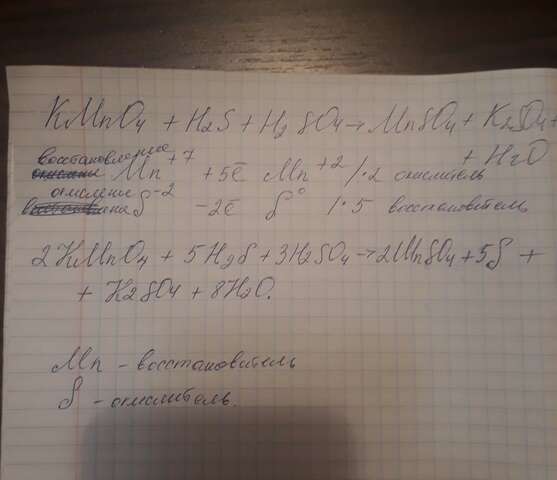 KMnO4 + H2S + H2SO4 → MnSO4 + K2SO4 +
+ H2O
восстановление Mn+7 +5ē Mn+2 /·2 окислитель
окисление S-2 -2ē S0 /·5 восстановитель
2KMnO4 + 5H2S + 3H2SO4 → 2MnSO4 + 5S +
+ K2SO4 + 8H2O.
Mn - восстановитель
S - окислитель.